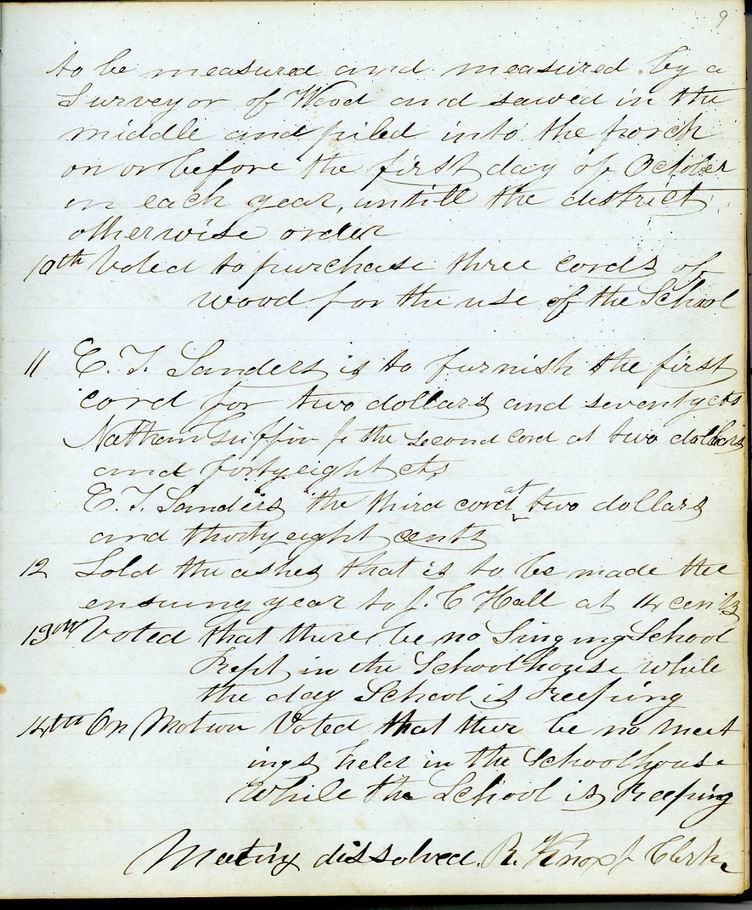 9
to be measured and measured by a
Surveyor of Wood and sawed in the
middle and piled into the porch
on or before the first day of October
in each year, untill the district
otherwise order
10th Voted to purchase three cords of
wood for the use of the School
11 E. T. Sanders is to furnish the first
cord for two dollars and seventy cts
Nathan Griffin Jr the second cord at two dollars
and forty eight cts
E. T. Sanders the third cord at two dollars
and thirty eight cents
12 Sold the ashes that is to be made the
ensuing year to J. C Hall at 14 cents
13th Voted that there be no Singing School
Kept in the Schoolhouse while
the day School is Keeping
14th On Motion Voted that ther be no meet
ings held in the Schoolhouse
While the School is Keeping
Meeting dissolved. R. Knox Jr Clerk